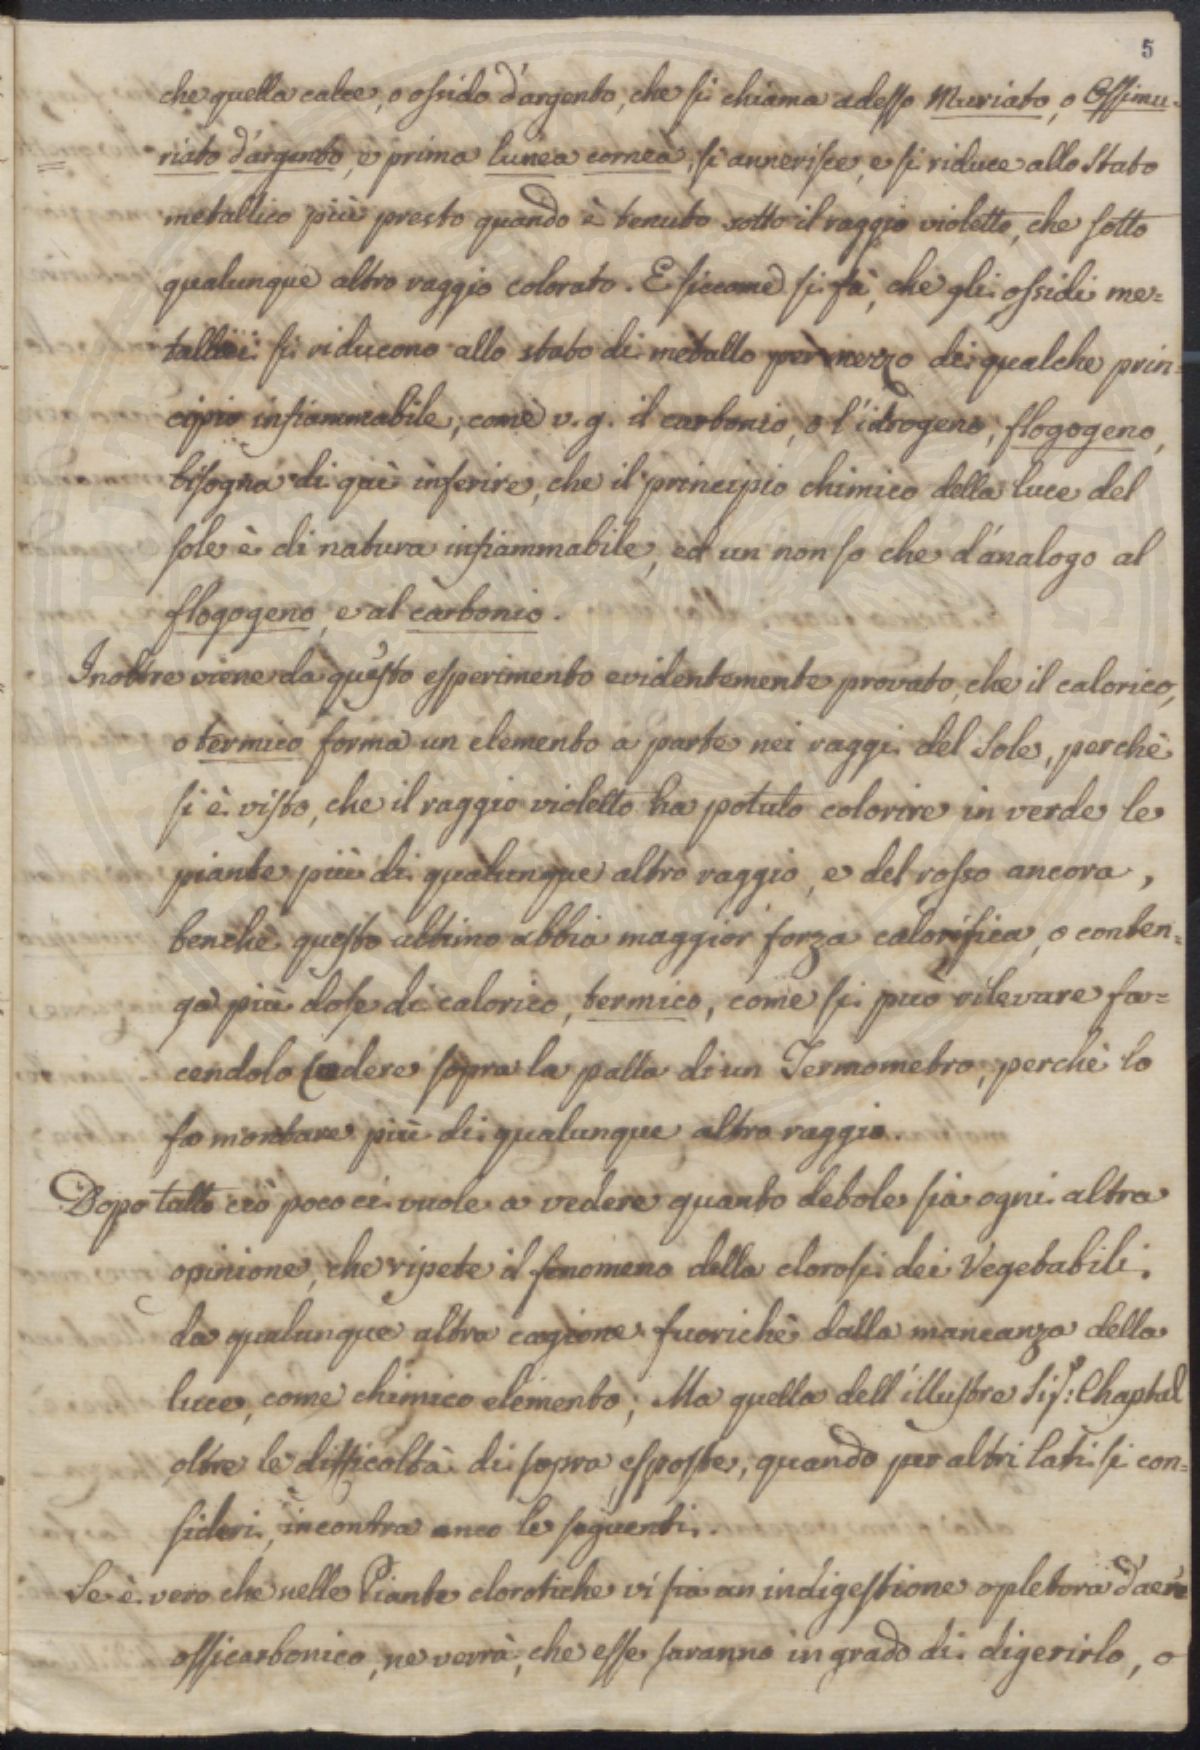 5
che quella calce, o ossido d'argento, che si chiama adesso Muriato, o Ossimu-
riato d'argento, e prima lunea cornea, si annerisce, e si riduce allo Stato
metallico più presto quando è tenuto sotto il raggio violetto, che sotto
qualunque altro raggio colorato. E siccome si fà, che gli ossidi me=
tallici si riducono allo stato di metallo per mezzo di qualche prin=
cipio infiammabile, come v.g. il carbonio, o l'idrogeno, flogogeno,
bisogna di quì inferire, che il principio chimico della luce del
sole è di natura infiammabile, ed un non so che d'analogo al
flogogeno, e al carbonio.
Inoltre viene da questo esperimento evidentemente provato, che il calorico,
o termico forma un elemento a parte nei raggi del Sole, perchè
si è visto, che il raggio violetto ha potuto colorire in verde le
piante più di qualunque altro raggio, e del rosso ancora,
benchè questo ultimo abbia maggior forza calorifica, o conten=
ga più dose di calorico, termico, come si può rilevare fa=
cendolo cadere sopra la palla di un Termometro, perchè lo
fa montare più di qualunque altro raggio.
Dopo tutto ciò poco ci vuole a vedere quanto debole sia ogni altra
opinione, che ripete il fenomeno della clorosi dei Vegetabili
da qualunque altra cagione fuorichè dalla mancanza della
luce, come chimico elemento; Ma quella dell'illustre Sig.: Chaptal
oltre le difficoltà di sopra esposte, quando per altri lati si con=
sideri, incontra anco le seguenti.
Se è vero che nelle Piante clorotiche vi sia un indigestione o pletora d'aere
ossicarbonico, ne verrà, che esse saranno in grado di digerirlo, o